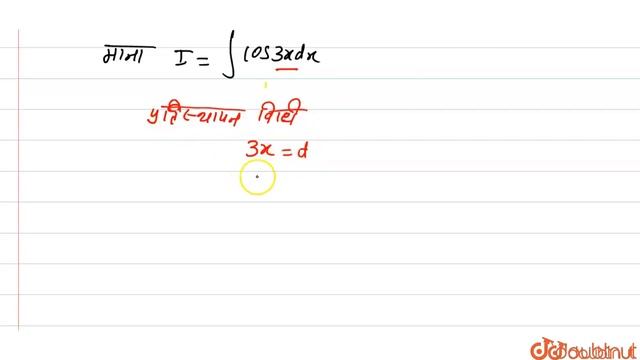 माना I = ∫ cos 3x dx
प्रतिस्थापन विधि
3x = d
doubtnut